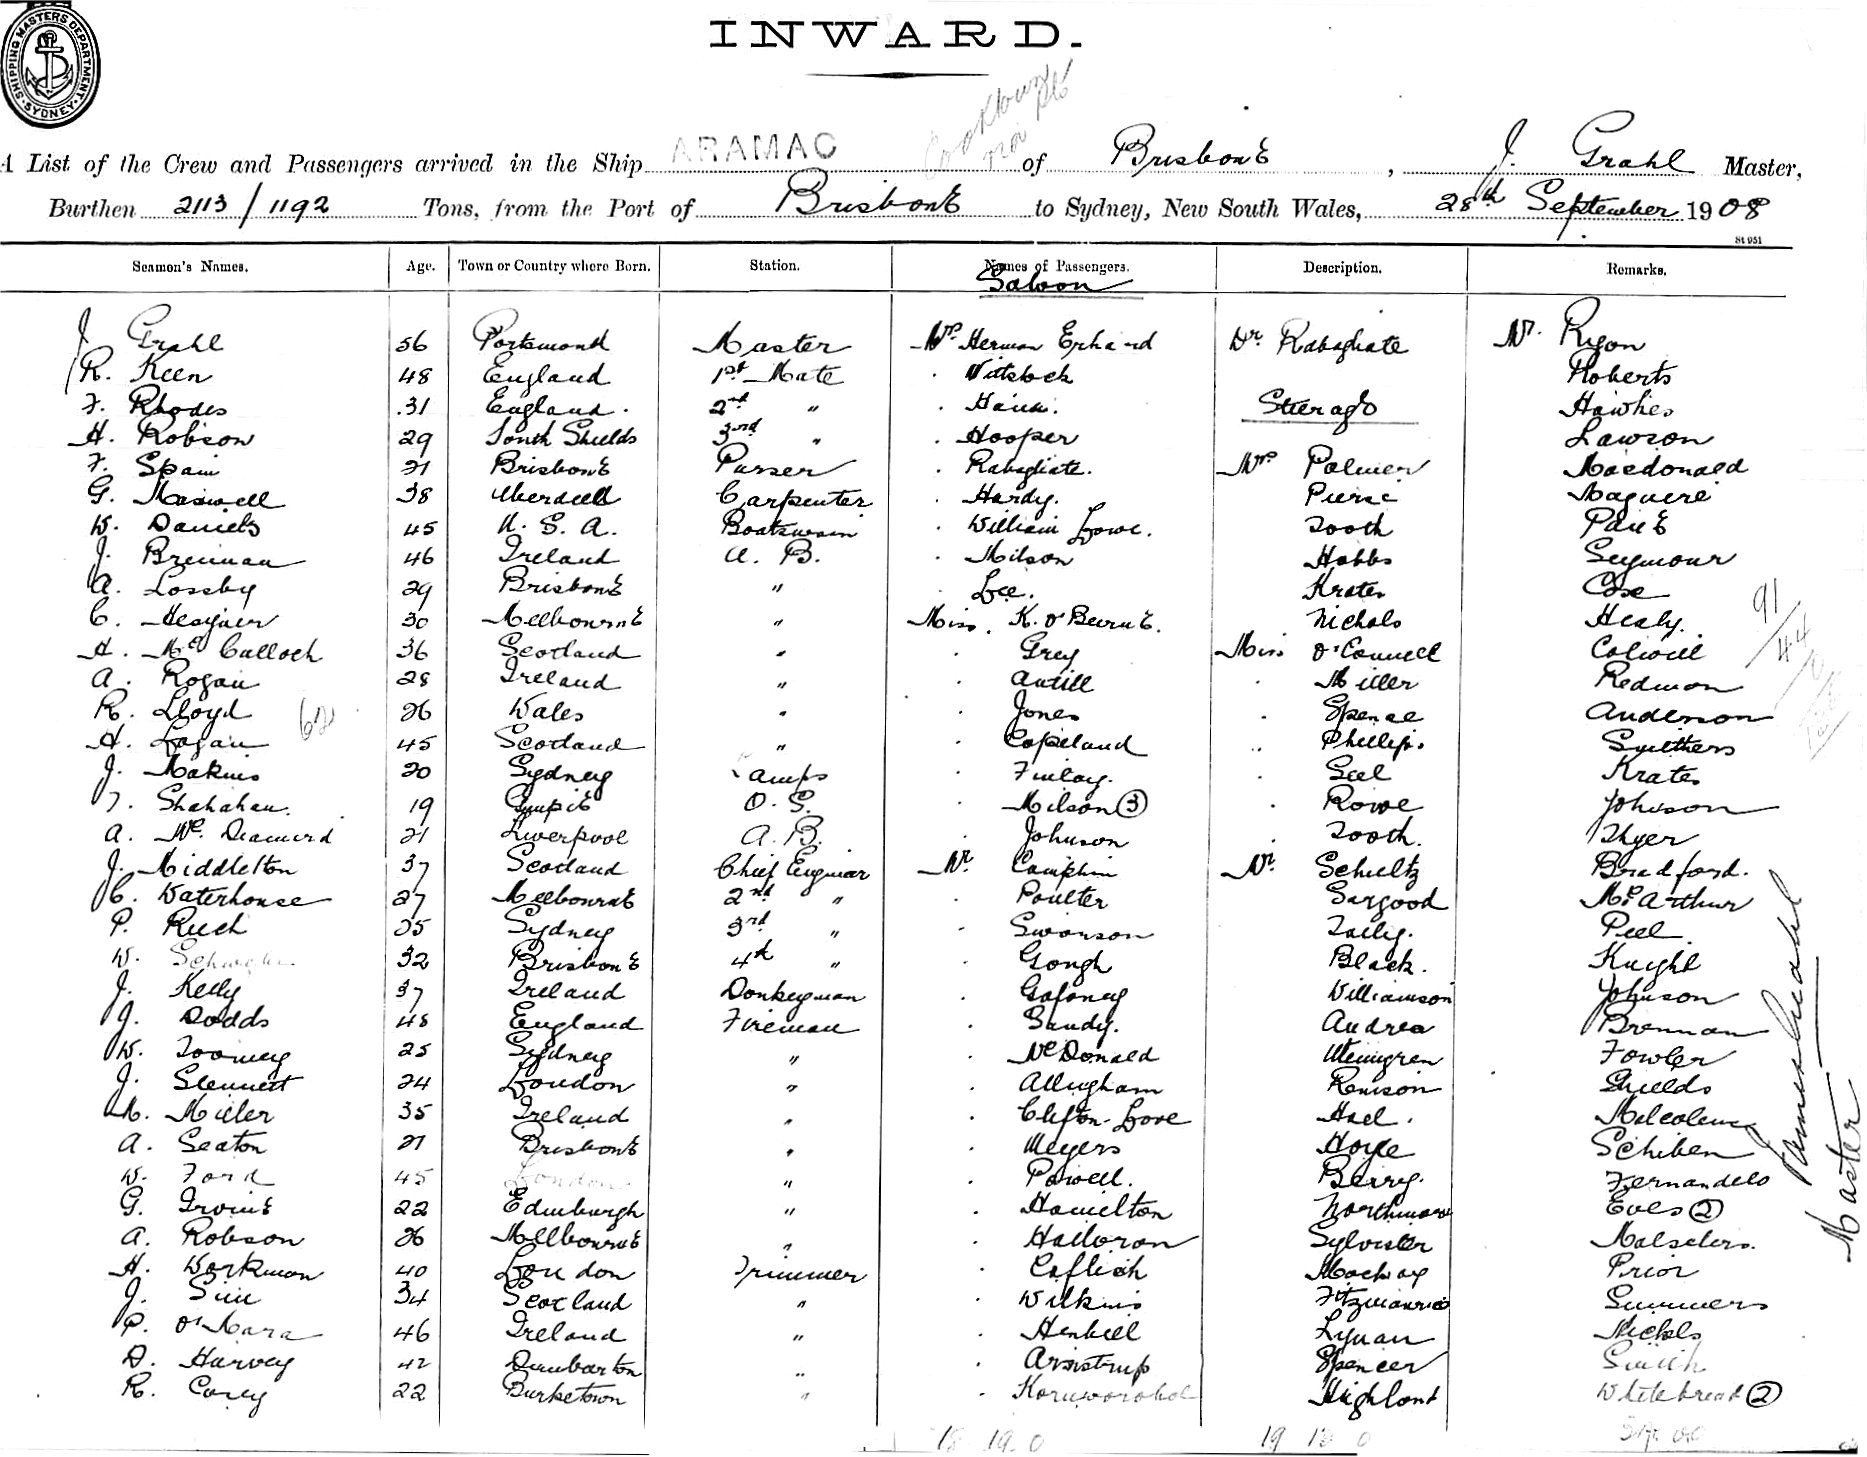 SHIPPING MASTERS DEPARTMENT. SYDNEY.
INWARD.
Cooktown
via pts
A List of the Crew and Passengers arrived in the Ship ARAMAC of Brisbane, J. Grahl Master,
Burthen 2113/1192 Tons, from the Port of Brisbane to Sydney, New South Wales, 28th September 1908
St 951
Seamen's Names. Age. Town or Country where Born. Station. Names of Passengers. Description. Remarks.
Saloon
J. Grahl 56 Portsmond Master Mr. Herman Erhard Dr. Rabagliate Mr. Ryan
R. Keen 48 England 1st Mate . Wittstock Roberts
F. Rhodes 31 England . 2nd " . Hann. Steerage Hawkes
H. Robson 29 South Shields 3rd " . Hooper Lawson
F. Spain 21 Brisbane Purser . Rabagliate. Mrs Palmer Macdonald
G. Maxwell 38 Aberdeen Carpenter . Hardy. Pierse Maguire
W. Daniels 45 U. S. A. Boatswain . William Lowe. Tooth Paue
J. Brennan 46 Ireland A. B. . Milson Hobbs Seymour
A. Lossby 29 Brisbane " Lee. Krates Cose
C. 30 Melbourne " Miss. K. O'Beirne. Nichols Healy.
H. McCulloch 36 Scotland " . Grey Miss O'Connell Colwill
A. Rogan 28 Ireland " . Antill . Miller Redmon
R. Lloyd 62 26 Wales " . Jones . Spense Anderson
H. Logan 45 Scotland " . Copeland .. Phillips. Smithers
J. Makins 20 Sydney Lamps . Finlay. . Seel Krates
T. Shahahan. 19 Gympie O. S. . Milson (3) . Rowe Johnson
A. McDiamond 21 Liverpool A. B. . Johnson . Tooth. Thyer
J. Middleton 37 Scotland Chief Engineer Mr. Camphin Mr. Schultz Bradford.
C. Waterhouse 27 Melbourne 2nd " . Poulter Sargood McArthur
P. Rush 25 Sydney 3rd " . Swanson Peel
W. 32 Brisbane 4th " . Gough Black. Knight
J. Kelly 37 Ireland Donkeyman . Gafoney Williamson Johnson
J. Dodds 48 England Fireman . Sandy. Andrea Brennan
W. Toomey 25 Sydney " . McDonald Fowler
J. Stennett 24 London " . Allingham Renison Shields
M. Miller 35 Ireland " . Clifton-Love Hael. Malcolm
A. Seaton 21 Brisbane " . Meyers Hoyle Schiben
W. Ford 45 London " . Powell. Berry. Fernandelo
G. Irvine 22 Edinburgh " . Hamilton Northmore Eves (2)
A. Robson 26 Melbourne " . Halloran Sylvester
H. Workman 40 London Trimmer . Caflish Mackay Prior
J. Sim 34 Scotland " . Wilkins Fitzmaurice Summers
P. O'Mara 46 Ireland " . Henkell Lynan Nickls
D. Harvey 42 Dumbarton " . Armstrup Spencer Smith
R. Corey 22 Burketown " . Highland Whitebread (2)
91/44
Master
18 19. 0 19 12 0